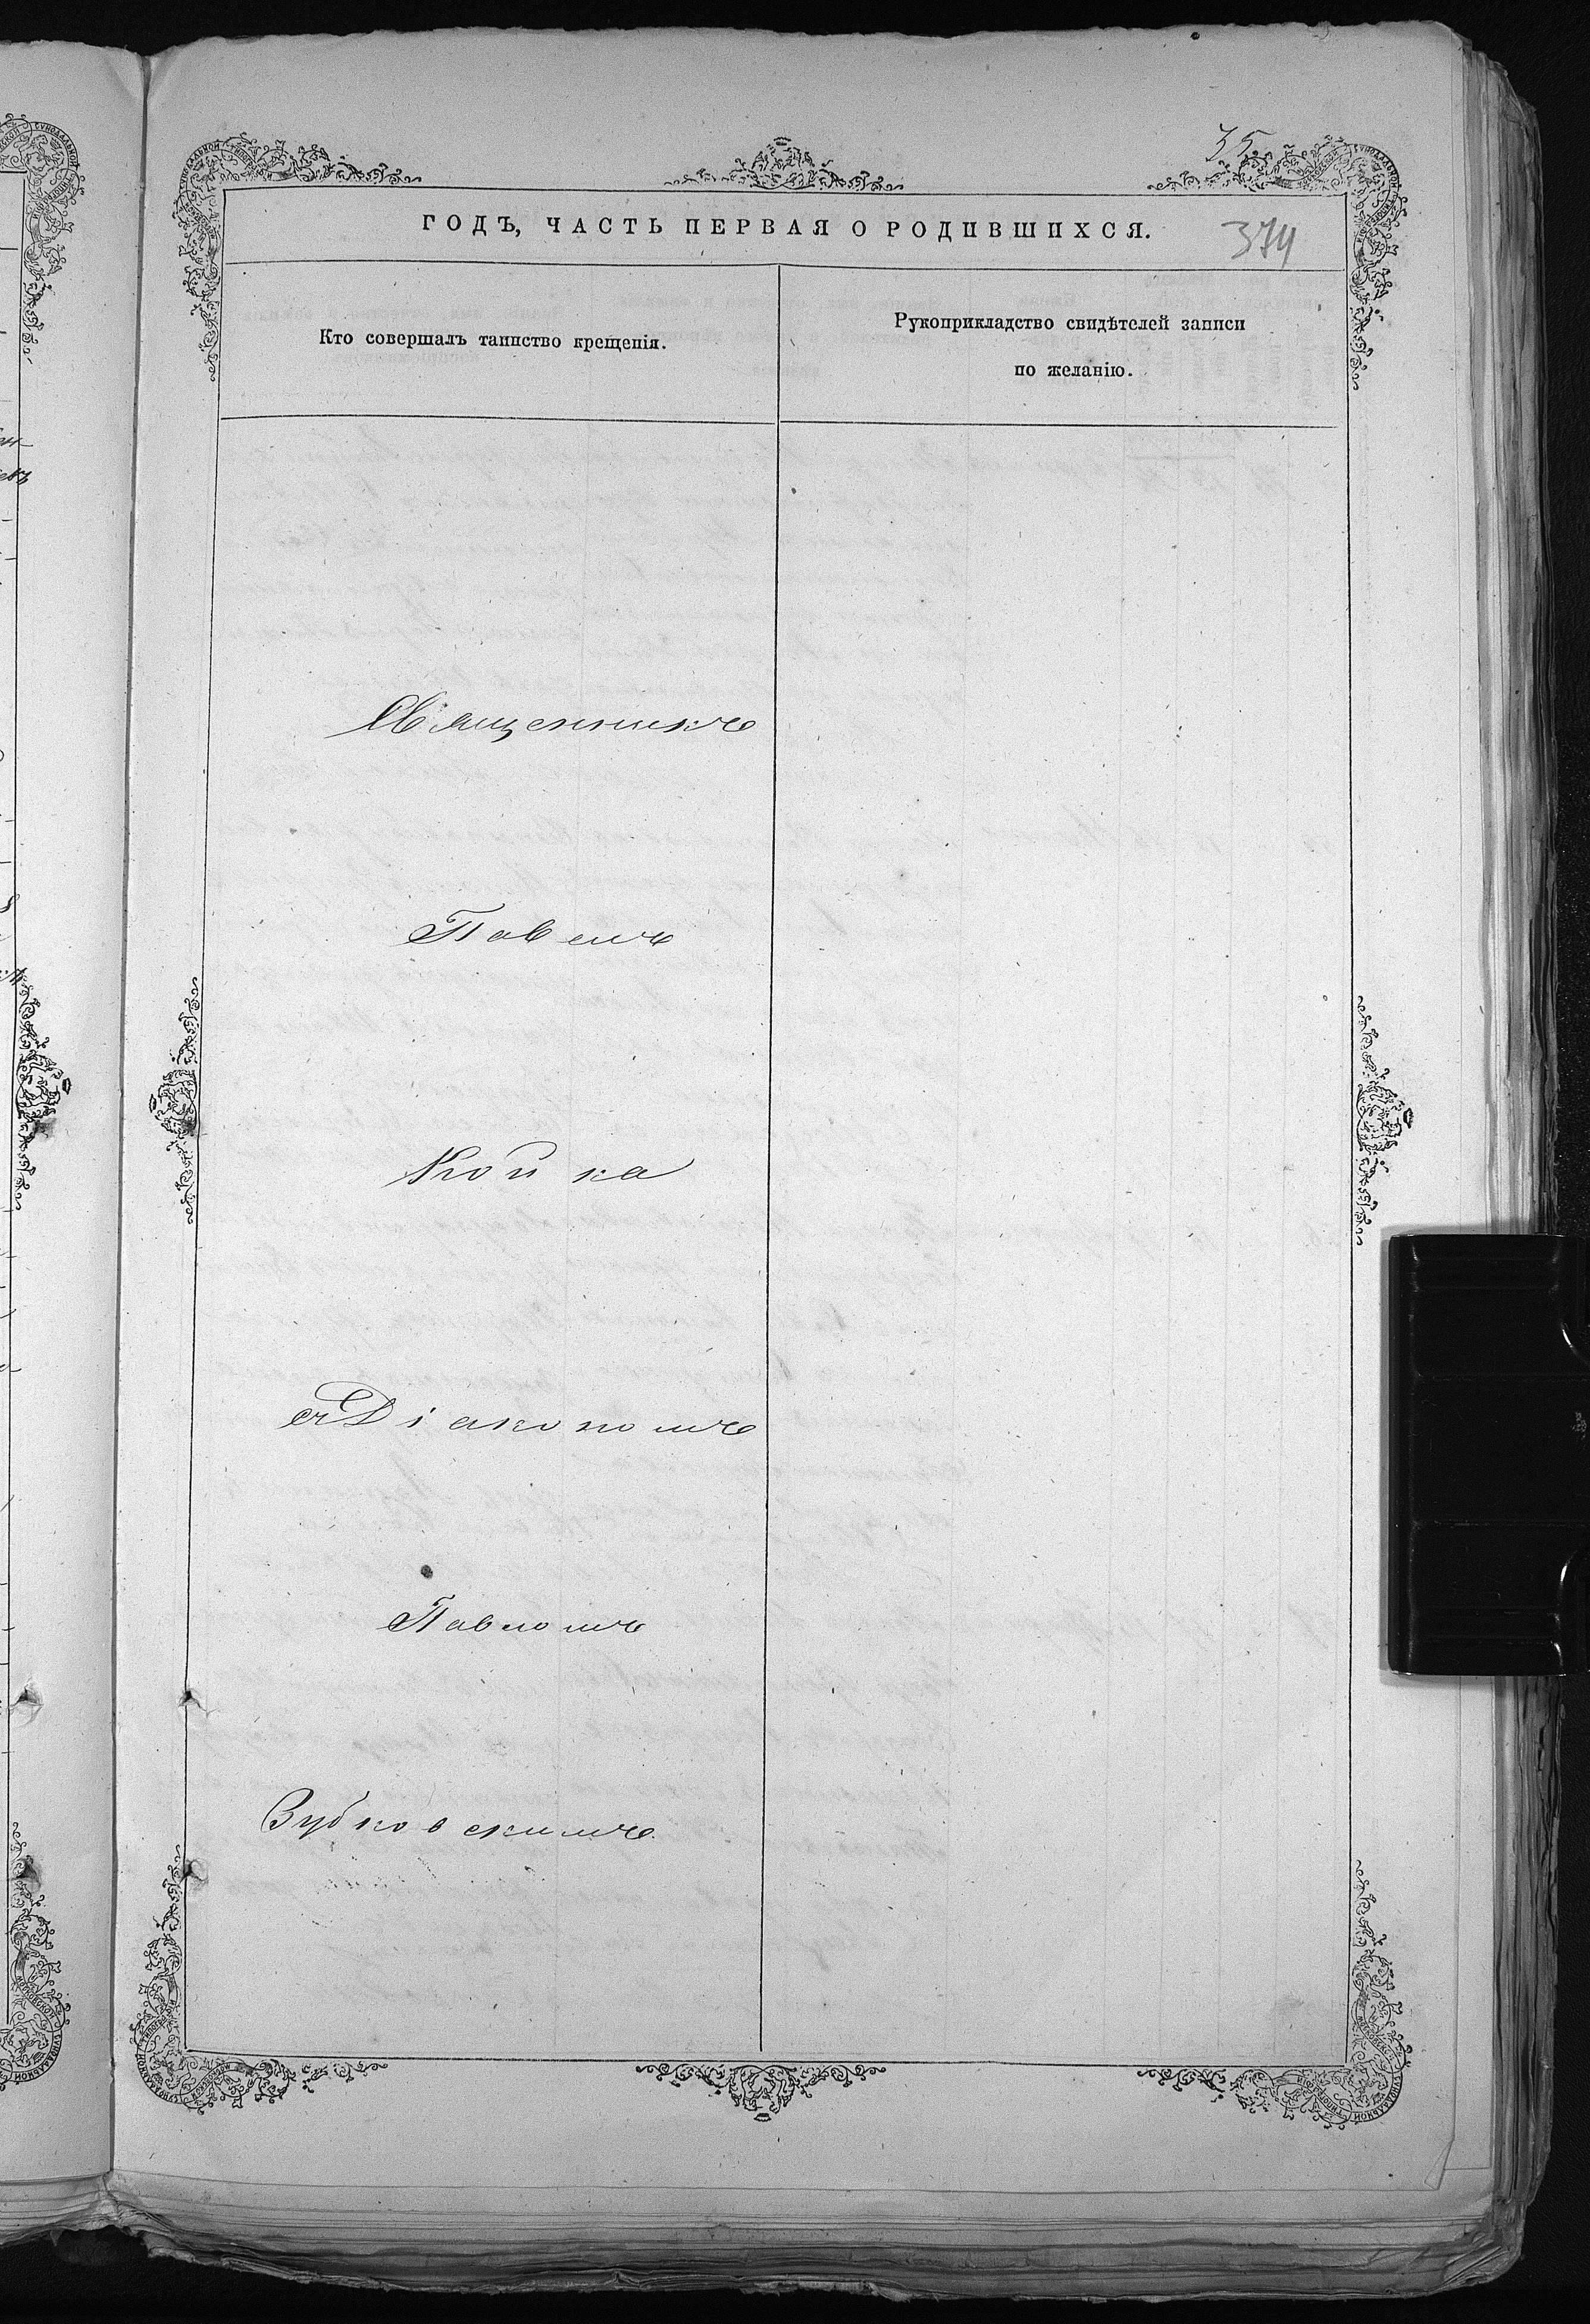 35
ГОДЪ, ЧАСТЬ ПЕРВАЯ О РОДИВШИХСЯ.
374
Кто совершалъ таинство крещенія.
Рукоприкладство свидѣтелей записи
по желанію.
Священникъ
Павелъ
Койка
съ Діакономъ
Павломъ
Зубковскимъ